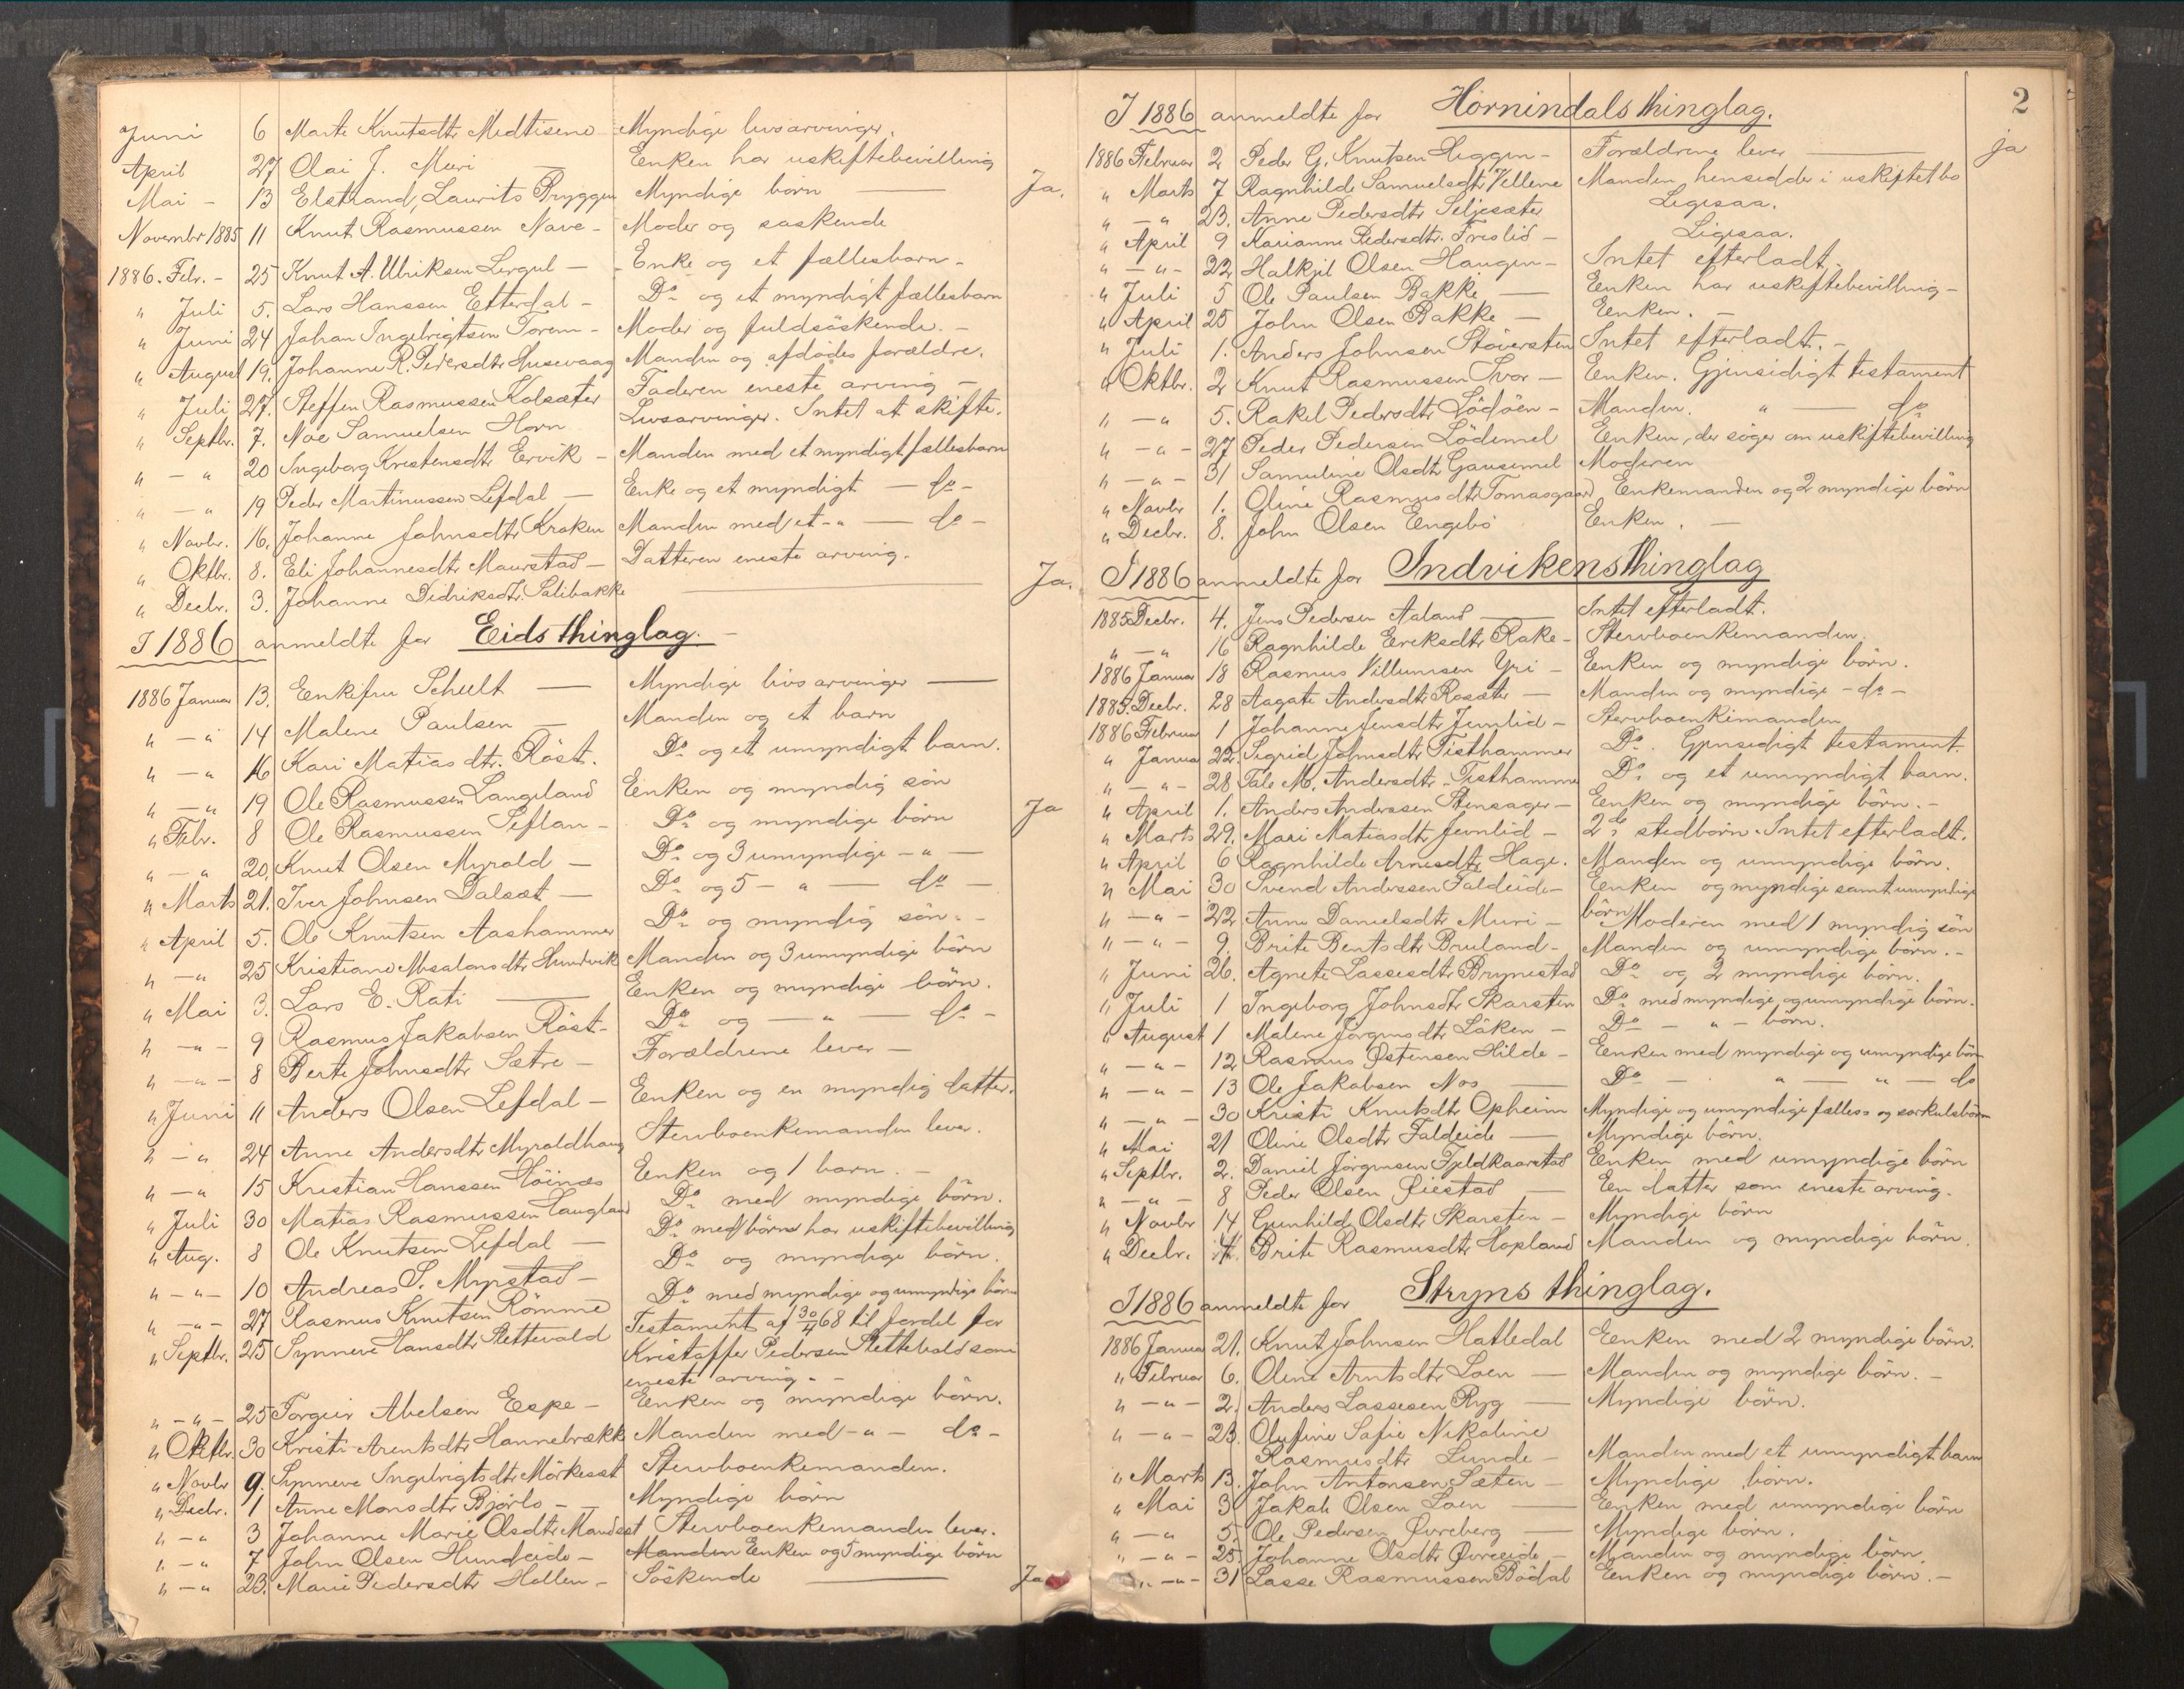 Juni 6 Marte Knutsdtr. Midtisene Myndige livsarvinger.
April 27 Olai J. Muri — Enken har uskiftebevilling
Mai - 13 Elstrand, Laurits Bryggen Myndige börn — Ja.
Novembr 1885 11 Knut Rasmussen Nave - Moder og søskende
1886. Febr. - 25 Knut A. Ulriksen Levgul - Enke og et fællesbarn -
" Juli 5. Lars Hanssen Etterdal - Do. og et myndigt fællesbarn
" Juni 24 Johan Ingebrigtsen Torem - Moder og fuldsöskende. -
" August 19. Johanne R. Pedersdtr Husevaag Manden og afdödes forældre.
" Juli 27. Steffen Rasmussen Kolsæter Faderen eneste arving -
" Septbr. 7. Noe Samuelsen Horn Livsarvinger. Intet at skifte.
" - " 20 Ingeborg Kristensdtr Ervik - Manden med et myndigt fællesbarn
" - " 19 Peder Martinussen Lefdal — Enke og et myndigt — do -
" Novbr. 16. Johanne Johnsdtr Kraken Manden med et - " — do -
" Oktbr. 8. Eli Johannesdtr Maurstad - Datteren eneste arving.
" Decbr. 3. Johanne Didriksdtr. Salibakke — Ja.
I 1886 anmeldte for Eids thinglag. -
1886 Januar 13. Enkefru Schult — Myndige livsarvinger —
" - " 14 Malene Paulsen — Manden og et barn
" - " 16 Kari Matiasdtr. Röst. Do og et umyndigt barn.
" - " 19 Ole Rasmussen Langeland Enken og myndig sön
" Febr. 8 Ole Rasmussen Seflan - Do og myndige börn Ja
" - " 20. Knut Olsen Myrold — Do og 3 umyndige - " -
" Marts 21. Iver Johnsen Dalsæt - Do og 5 - " — do -
" April 5. Ole Knutsen Aashammer Do og myndig sön. -
" - " 25 Kristiane Absalonsdtr Hundvik Manden og 3 umyndige börn
" Mai 3. Lars E. Rati — Enken og myndige börn.
" - " - 9 Rasmus Jakobsen Röst - Do og — " — do -
" - " - 8 Berte Johnsdtr Sætre - Forældrene lever -
" Juni 11 Anders Olsen Lefdal - Enken og en myndig datter.
" - " 24 Anne Andersdtr Myroldhaug Stervboenkemanden lever.
" - " 15 Kristian Hanssen Höinæs Enken og 1 barn. -
" Juli 30 Matias Rasmussen Haugland Do med myndige börn.
" Aug. 8 Ole Knutsen Lefdal — Do med börn har uskiftebevilling
" - " - 10 Andreas S. Myrstad - Do og myndige börn.
" - " - 27 Rasmus Knutsen Römme Do med myndige og umyndige börn
" Septbr. 25 Synneve Hansdtr Stettevold Testament af 30/4 68 til fordel for
Kristoffer Pedersen Stettebold som
eneste arving. -
" - " - 25 Torger Abelsen Espe - Enken og myndige börn.
" Oktbr. 30 Kristi Arentsdtr Hannebrække Manden med - " - do -
" Novbr 9. Synneve Ingebrigtsdtr Mörkesæt Stervboenkemanden.
" Decbr. 1 Anne Monsdtr Bjørlo - - Myndige börn
" - " 3 Johanne Marie Olsdtr Mandsæt Stervboenkemanden lever.
" - " 7 John Olsen Hundeide - Manden Enken og 5 myndige börn
" - " 23. Marie Pedersdtr Hollen - Söskende — Ja
2
I 1886 anmeldte for Hornindals thinglag.
1886 Februar 2 Peder G. Knutsen Heggen - Forældrene lever — ja
" Marts 7 Ragnhilde Samuelsdtr Vellene Manden hensidder i uskiftet bo
" - " 23. Anne Pedersdtr Seljesæter Ligesaa.
" April 9 Karianne Pedersdtr. Freslid - Ligesaa.
" - " - 22 Halkjel Olsen Haugen - Intet efterladt.
" Juli 5 Ole Paulsen Bakke — Enken har uskiftebevilling -
" April 25 John Olsen Bakke — Enken. -
" Juli 1. Anders Johnsen Stöversten Intet efterladt. -
" Oktbr. 2 Knut Rasmussen Svor - Enken. Gjensidigt testament
" - " 5. Rakel Pedersdtr Lödöen - Manden. " — do
" - " - 27 Peder Pedersen Lödemel Enken, der söger om uskiftebevilling
" - " - 31 Samuline Olsdtr Gausemel Moderen
" Novbr 1. Oline Rasmusdtr Tomasgaard Enkemanden og 2 myndige börn
" Decbr. 8. John Olsen Engebö Enken. —
I 1886 anmeldte for Indvikens thinglag
1885 Decbr. 4. Jens Pedersen Aaland — Intet efterladt.
" - " 16 Ragnhilde Eriksdtr Rake - Stervboenkemanden.
1886 Januar 18 Rasmus Villumsen Yri - Enken og myndige börn.
1885. Decbr. 28 Aagate Andersdtr Rosæter — Manden og myndige - do -
1886 Februar 1 Johanne Jensdtr Jemlid - Stervboenkemanden
" Januar 22. Sigrid Johnsdtr Tisthammer Do. Gjensidigt testament.
" - " - 28 Tale M. Andersdtr. Tisthammer Do og et umyndigt barn.
" April 1. Anders Anderssen Stensager - Enken og myndige börn. -
" Marts 29. Mari Matiasdtr Jevnlid - 2de stedbörn. Intet efterladt.
" April 6 Ragnhilde Arnesdtr Hage. Manden og umyndige börn.
" Mai 30 Svend Anderssen Faldeide - Enken og myndige samt umyndige
börn
" - " - 22. Anne Danielsdtr Muri - Moderen med 1 myndig sön
" - " - 9. Brite Bentsdtr Bruland - Manden og umyndige börn. -
" Juni 26. Agnete Lassesdtr Brynestad Do og 2 myndige börn.
" Juli 1 Ingeborg Johnsdtr Skarsten Do med myndige og umyndige börn.
" August 1 Malene Jörgensdtr Löken - Do - " - börn.
" - " - 12 Rasmus Østensen Hilde - Enken med myndige og umyndige börn
" - " - 13 Ole Jakobsen Nos — Do — " — " — do
" - " - 30 Kristi Knutsdtr Opheim Myndige og umyndige fælles- og særkulsbörn
" Mai 21 Oline Olsdtr Faldeide — Myndige börn.
" Septbr. 2. Daniel Jörgensen Fjeldkaarstad Enken med umyndige börn
" - " - 8 Peder Olsen Øiestad — En datter som eneste arving.
" Novbr 14 Gunhild Olsdtr Skarsten - Myndige börn
" Decbr. 14. Brite Rasmusdtr Hopland Manden og myndige börn.
I 1886 anmeldte for Stryns thinglag.
1886 Januar 21. Knut Johnsen Hatledal Enken med 2 myndige börn.
" Februar 6. Oline Arntsdtr Loen — Manden og myndige börn. -
" - " - 2. Anders Lassesen Ryg — Myndige börn.
" - " - 23. Olufine Sofie Nikoline
Rasmusdtr Lunde - Manden med et umyndigt barn
" Marts 13. John Antonsen Sæten - Myndige börn.
" Mai 3 Jakob Olsen Loen — Enken med umyndige börn
" - " 5. Ole Pedersen Øvreberg — Myndige börn.
" - " - 25. Johanne Olsdtr Øvreeide - Manden og myndige börn.
" - " - 31 Lasse Rasmussen Bödal Enken og myndige börn. -